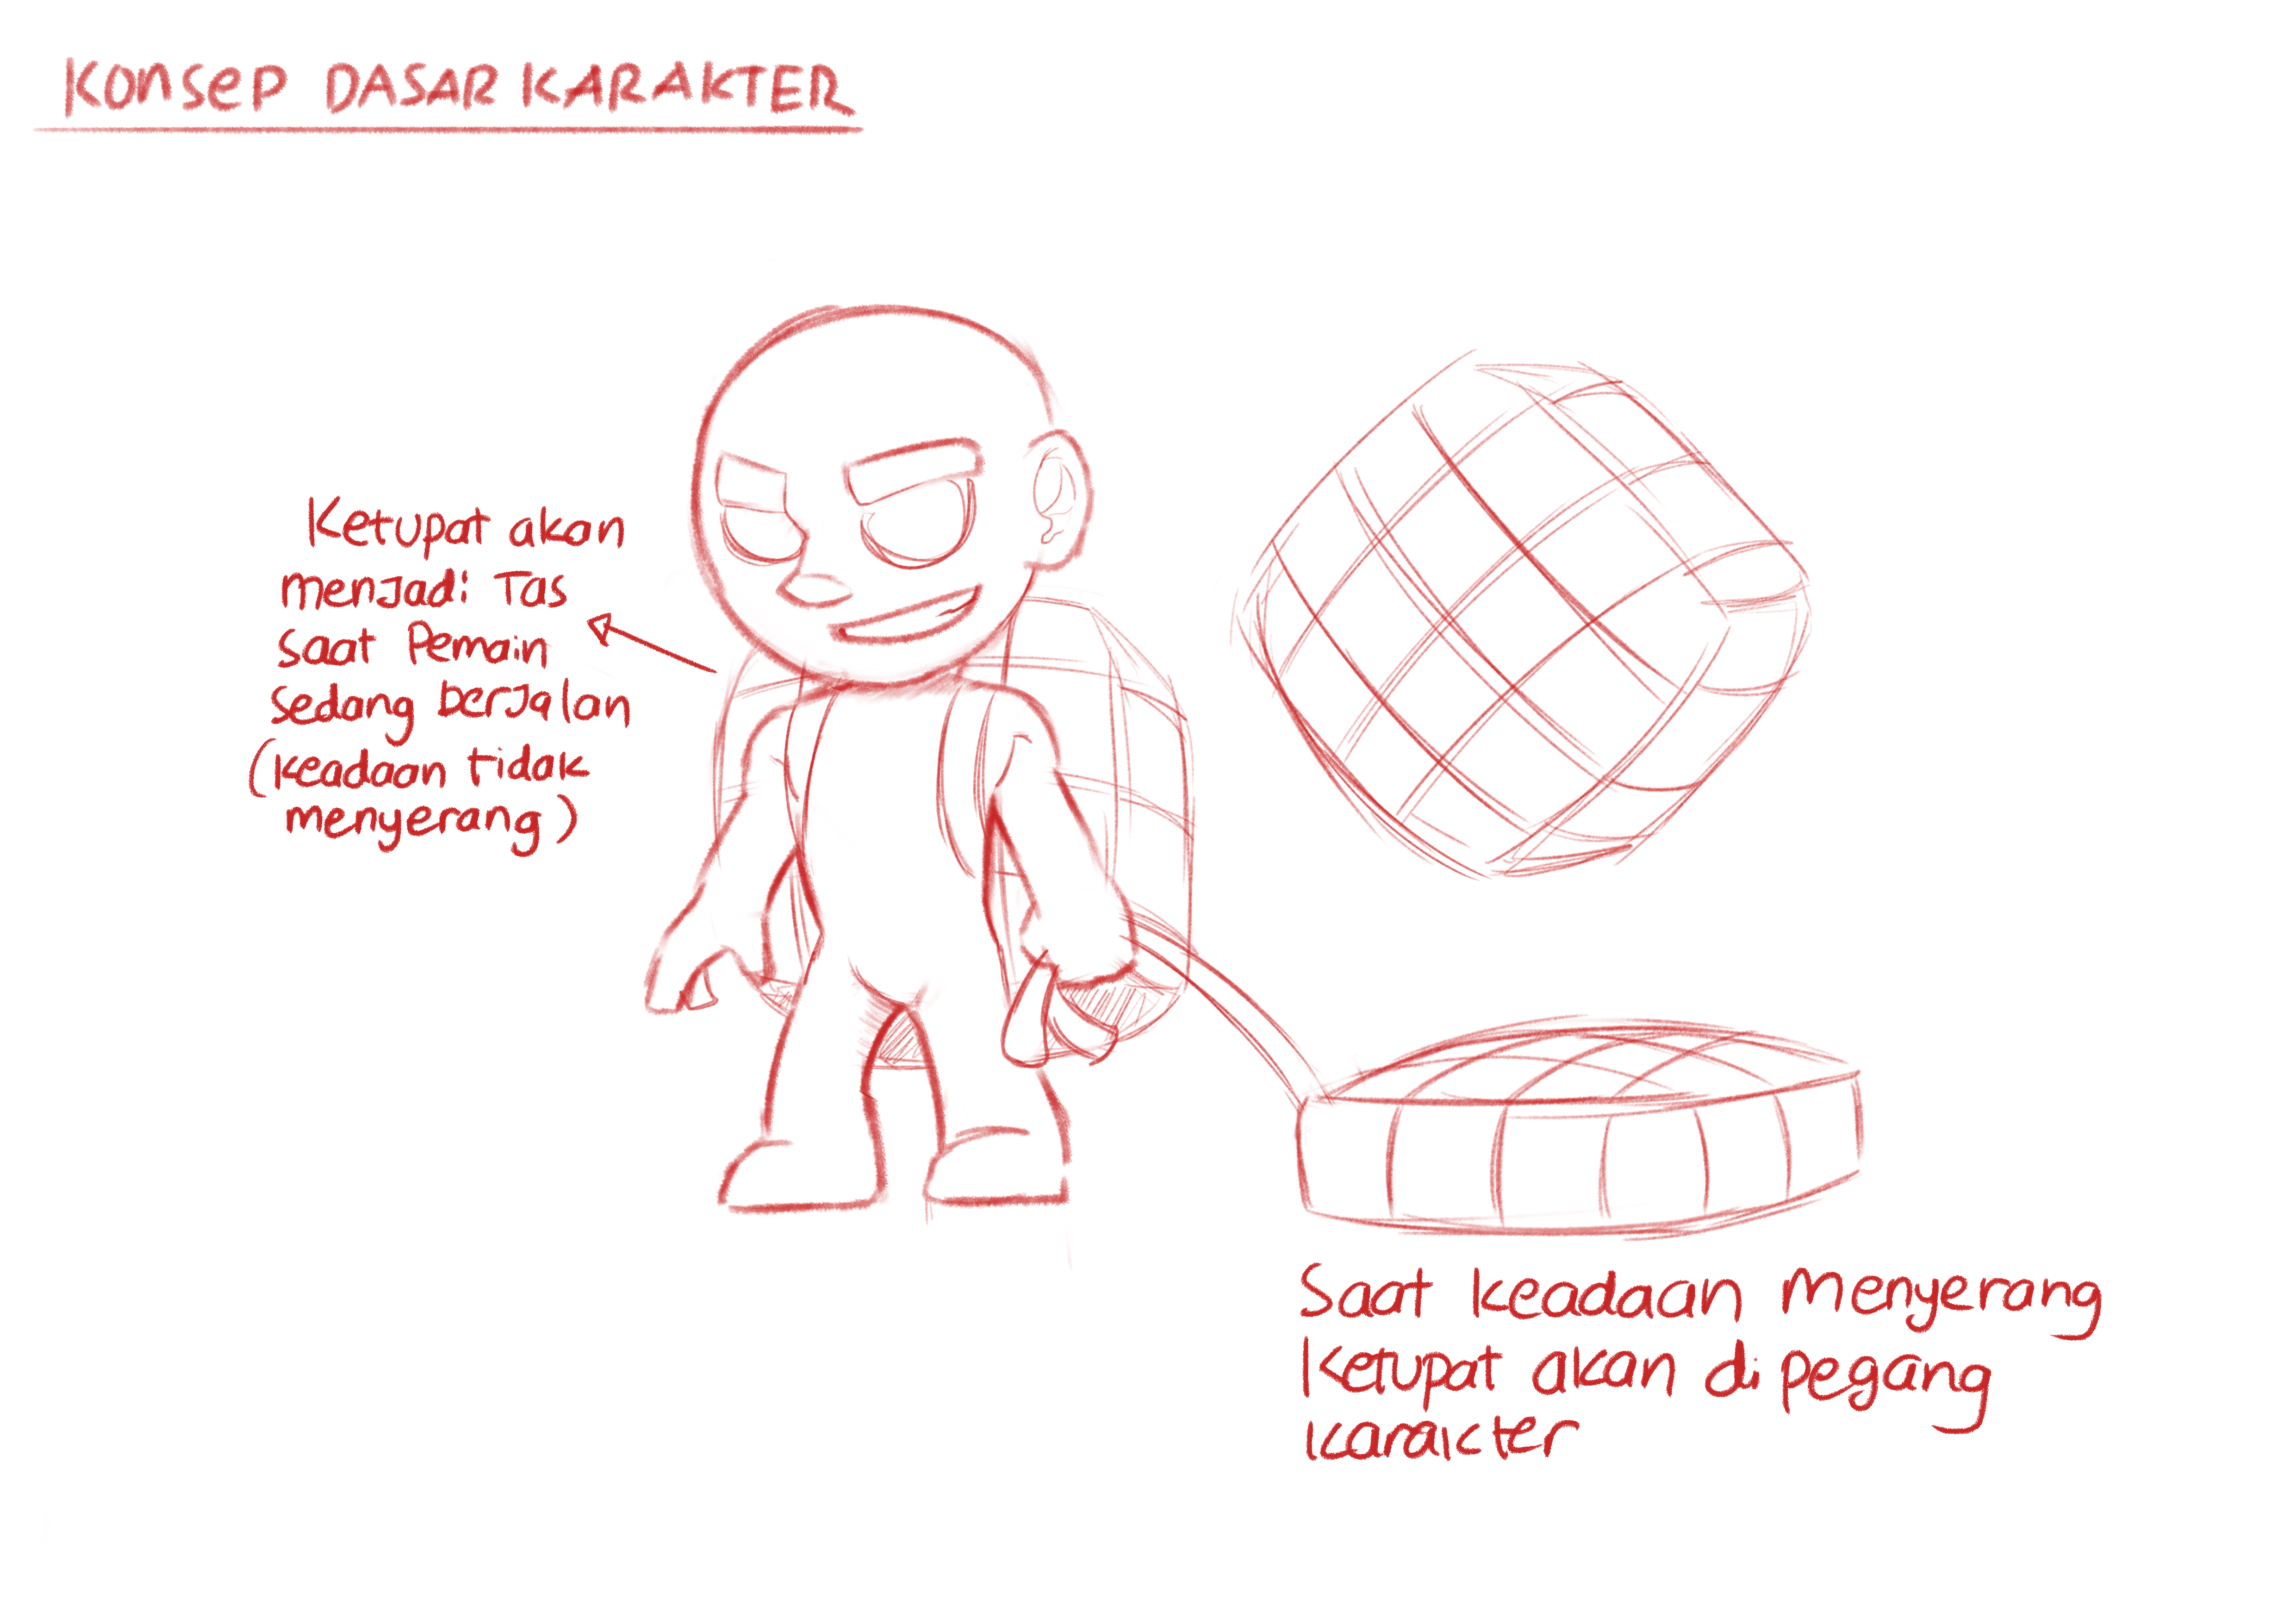 KONSEP DASAR KARAKTER
Ketupat akan
menjadi Tas
saat Pemain
sedang berjalan
(keadaan tidak
menyerang)
Saat keadaan menyerang
Ketupat akan di pegang
karakter